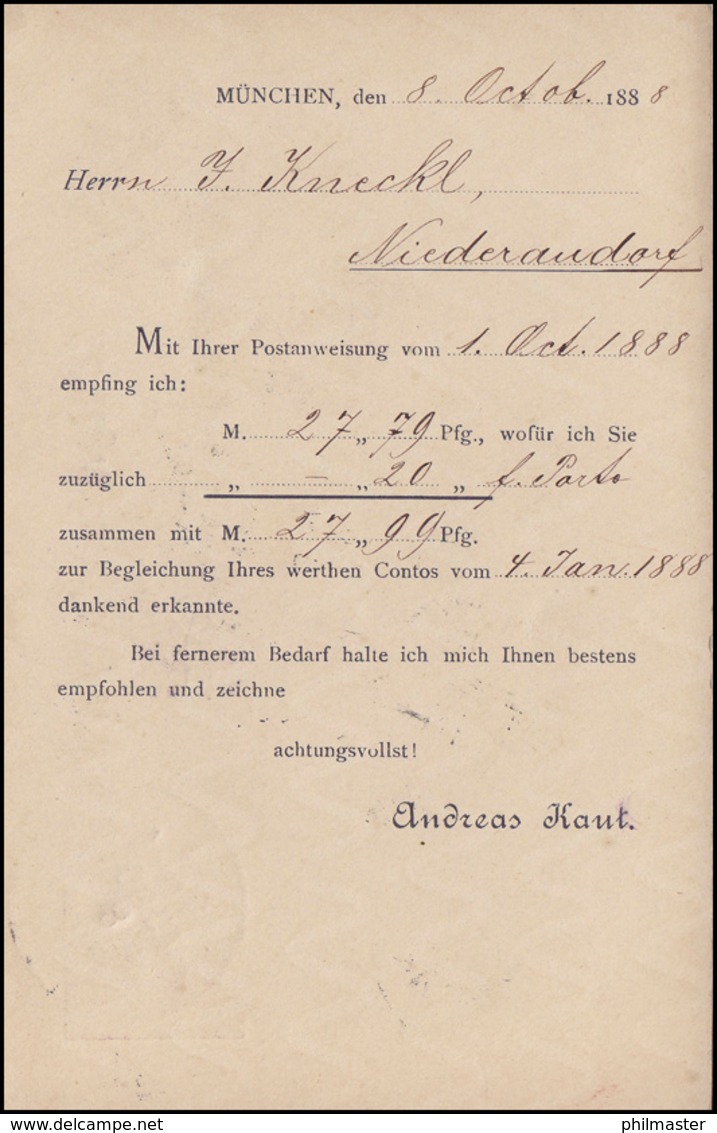 MÜNCHEN, den 8. Octob. 1888
Herrn J. Kneckl,
Niederaudorf
Mit Ihrer Postanweisung vom 1. Oct. 1888
empfing ich:
M. 27 „ 79 Pfg., wofür ich Sie
zuzüglich „ — „ 20 „ f. Porto
zusammen mit M. 27 „ 99 Pfg.
zur Begleichung Ihres werthen Contos vom 4. Jan. 1888
dankend erkannte.
Bei fernerem Bedarf halte ich mich Ihnen bestens
empfohlen und zeichne
achtungsvollst!
Andreas Kaut.
www.delcampe.net
philmaster